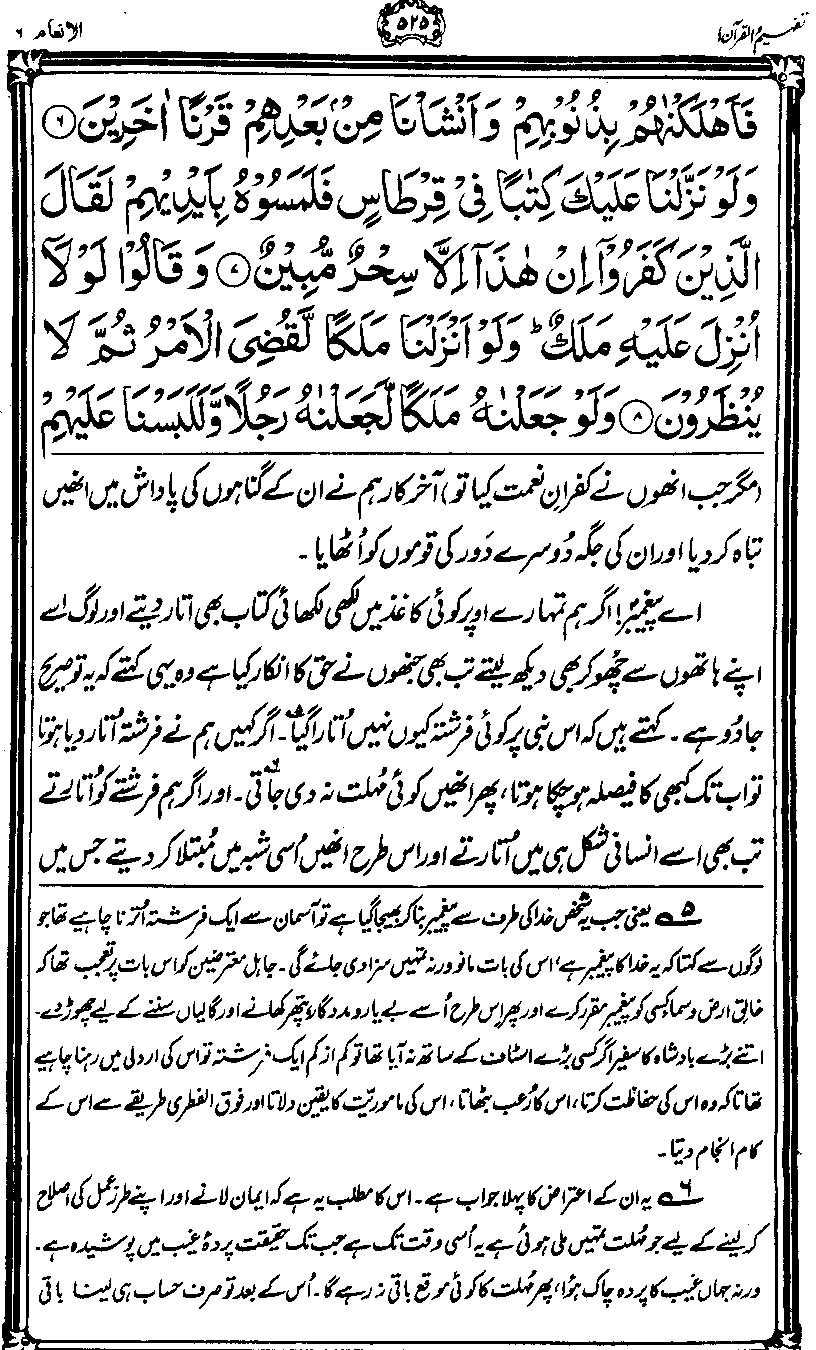 تفہیم القرآن ۱
۵۲۵
الانعام ۶
فَاَهْلَكْنٰهُمْ بِذُنُوْبِهِمْ وَاَنْشَاْنَا مِنْۢ بَعْدِهِمْ قَرْنًا اٰخَرِيْنَ ۶
وَلَوْ نَزَّلْنَا عَلَيْكَ كِتٰبًا فِيْ قِرْطَاسٍ فَلَمَسُوْهُ بِاَيْدِيْهِمْ لَقَالَ
الَّذِيْنَ كَفَرُوْۤا اِنْ هٰذَاۤ اِلَّا سِحْرٌ مُّبِيْنٌ ۷ وَقَالُوْا لَوْ لَاۤ
اُنْزِلَ عَلَيْهِ مَلَكٌ ؕ وَلَوْ اَنْزَلْنَا مَلَكًا لَّقُضِيَ الْاَمْرُ ثُمَّ لَا
يُنْظَرُوْنَ ۸ وَلَوْ جَعَلْنٰهُ مَلَكًا لَّجَعَلْنٰهُ رَجُلًا وَّلَلَبَسْنَا عَلَيْهِمْ
(مگر جب انھوں نے کفرانِ نعمت کیا تو) آخر کار ہم نے ان کے گناہوں کی پاداش میں انھیں
تباہ کر دیا اور ان کی جگہ دُوسرے دَور کی قوموں کو اُٹھایا ۔
اے پیغمبرؐ! اگر ہم تمہارے اوپر کوئی کاغذ میں لکھی لکھائی کتاب بھی اتار دیتے اور لوگ اسے
اپنے ہاتھوں سے چُھو کر بھی دیکھ لیتے تب بھی جنھوں نے حق کا انکار کیا ہے وہ یہی کہتے کہ یہ تو صریح
جادُو ہے ۔ کہتے ہیں کہ اس نبی پر کوئی فرشتہ کیوں نہیں اُتارا گیا۵۔ اگر کہیں ہم نے فرشتہ اُتار دیا ہوتا
تو اب تک کبھی کا فیصلہ ہو چکا ہوتا، پھر انھیں کوئی مُہلت نہ دی جاتی۶۔ اور اگر ہم فرشتے کو اُتارتے
تب بھی اسے انسانی شکل ہی میں اُتارتے اور اس طرح انھیں اُسی شبہ میں مُبتلا کر دیتے جس میں
۵ یعنی جب یہ شخص خدا کی طرف سے پیغمبر بنا کر بھیجا گیا ہے تو آسمان سے ایک فرشتہ اُترنا چاہیے تھا جو
لوگوں سے کہتا کہ یہ خدا کا پیغمبر ہے، اس کی بات مانو ورنہ تمہیں سزا دی جائے گی۔ جاہل معترضین کو اس بات پر تعجب تھا کہ
خالقِ ارض و سما کسی کو پیغمبر مقرر کرے اور پھر اس طرح اُسے بے یار و مددگار، پتھر کھانے اور گالیاں سننے کے لیے چھوڑ دے۔
اتنے بڑے بادشاہ کا سفیر اگر کسی بڑے اسٹاف کے ساتھ نہ آیا تھا تو کم از کم ایک فرشتہ تو اس کی اردلی میں رہنا چاہیے
تھا تا کہ وہ اس کی حفاظت کرتا، اس کا رُعب بٹھاتا، اس کی ماموریّت کا یقین دلاتا اور فوق الفطری طریقے سے اس کے
کام انجام دیتا ۔
۶ یہ ان کے اعتراض کا پہلا جواب ہے ۔ اس کا مطلب یہ ہے کہ ایمان لانے اور اپنے طرزِ عمل کی اصلاح
کر لینے کے لیے جو مُہلت تمہیں ملی ہوئی ہے یہ اُسی وقت تک ہے جب تک حقیقت پردۂ غیب میں پوشیدہ ہے ۔
ورنہ جہاں غیب کا پردہ چاک ہُوا، پھر مُہلت کا کوئی موقع باقی نہ رہے گا۔ اُس کے بعد تو صرف حساب ہی لینا باقی